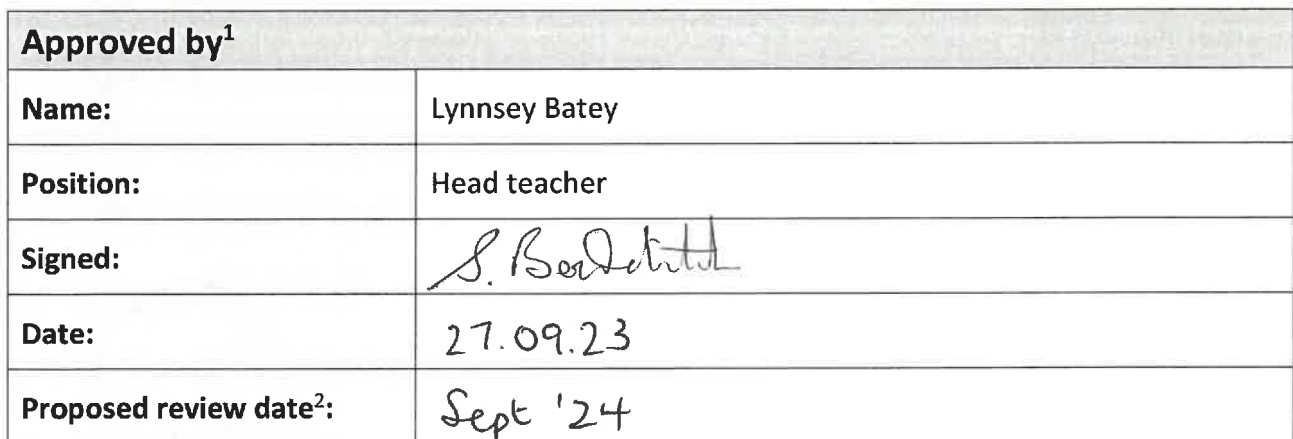 Approved by¹
Name: Lynnsey Batey
Position: Head teacher
Signed: S.
Date: 27.09.23
Proposed review date²: Sept '24